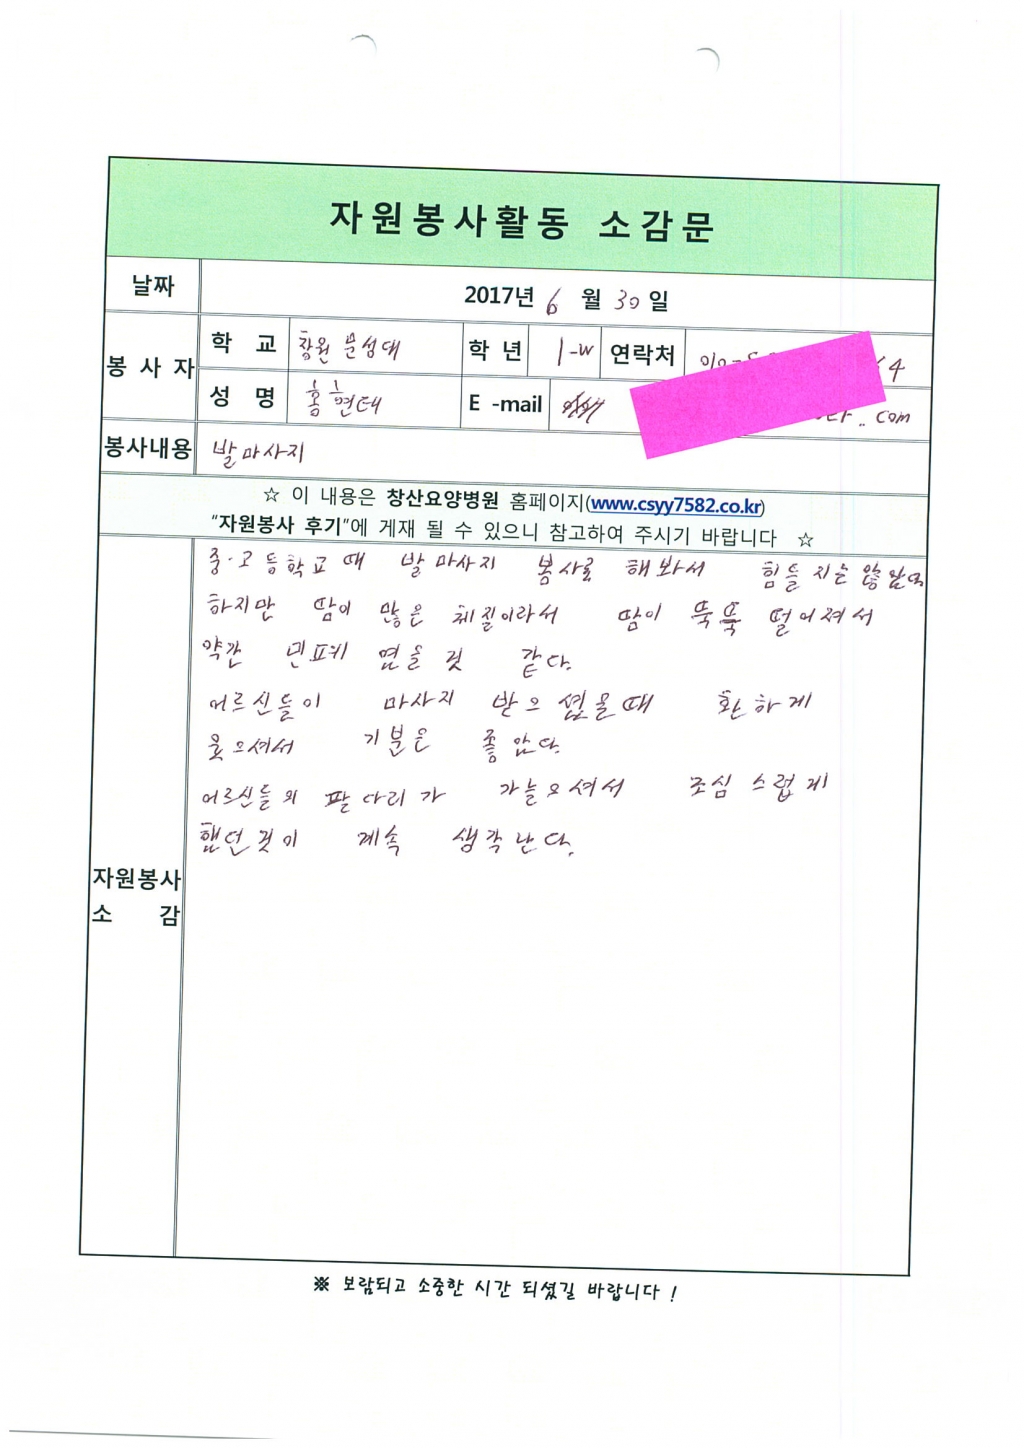 자원봉사활동 소감문
날짜
2017년 6 월 30 일
봉 사 자
학 교
창원 문성대
학 년
1-W
연락처
010-
4
성 명
홍현태
E -mail
com
봉사내용
발마사지
☆ 이 내용은 창산요양병원 홈페이지(www.csyy7582.co.kr)
"자원봉사 후기"에 게재 될 수 있으니 참고하여 주시기 바랍니다 ☆
자원봉사
소 감
중·고등학교 때 발마사지 봉사를 해봐서 힘들지는 않았다
하지만 땀이 많은 체질이라서 땀이 뚝뚝 떨어져서
약간 민폐 같다.
어르신들이 마사지 받으셨을때 환하게
웃으셔서 기분은 좋았다.
어르신들의 팔다리가 가늘으셔서 조심 스럽게
했던것이 계속 생각난다.
※ 보람되고 소중한 시간 되셨길 바랍니다 !